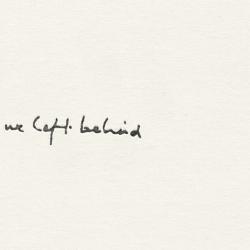 we left behind